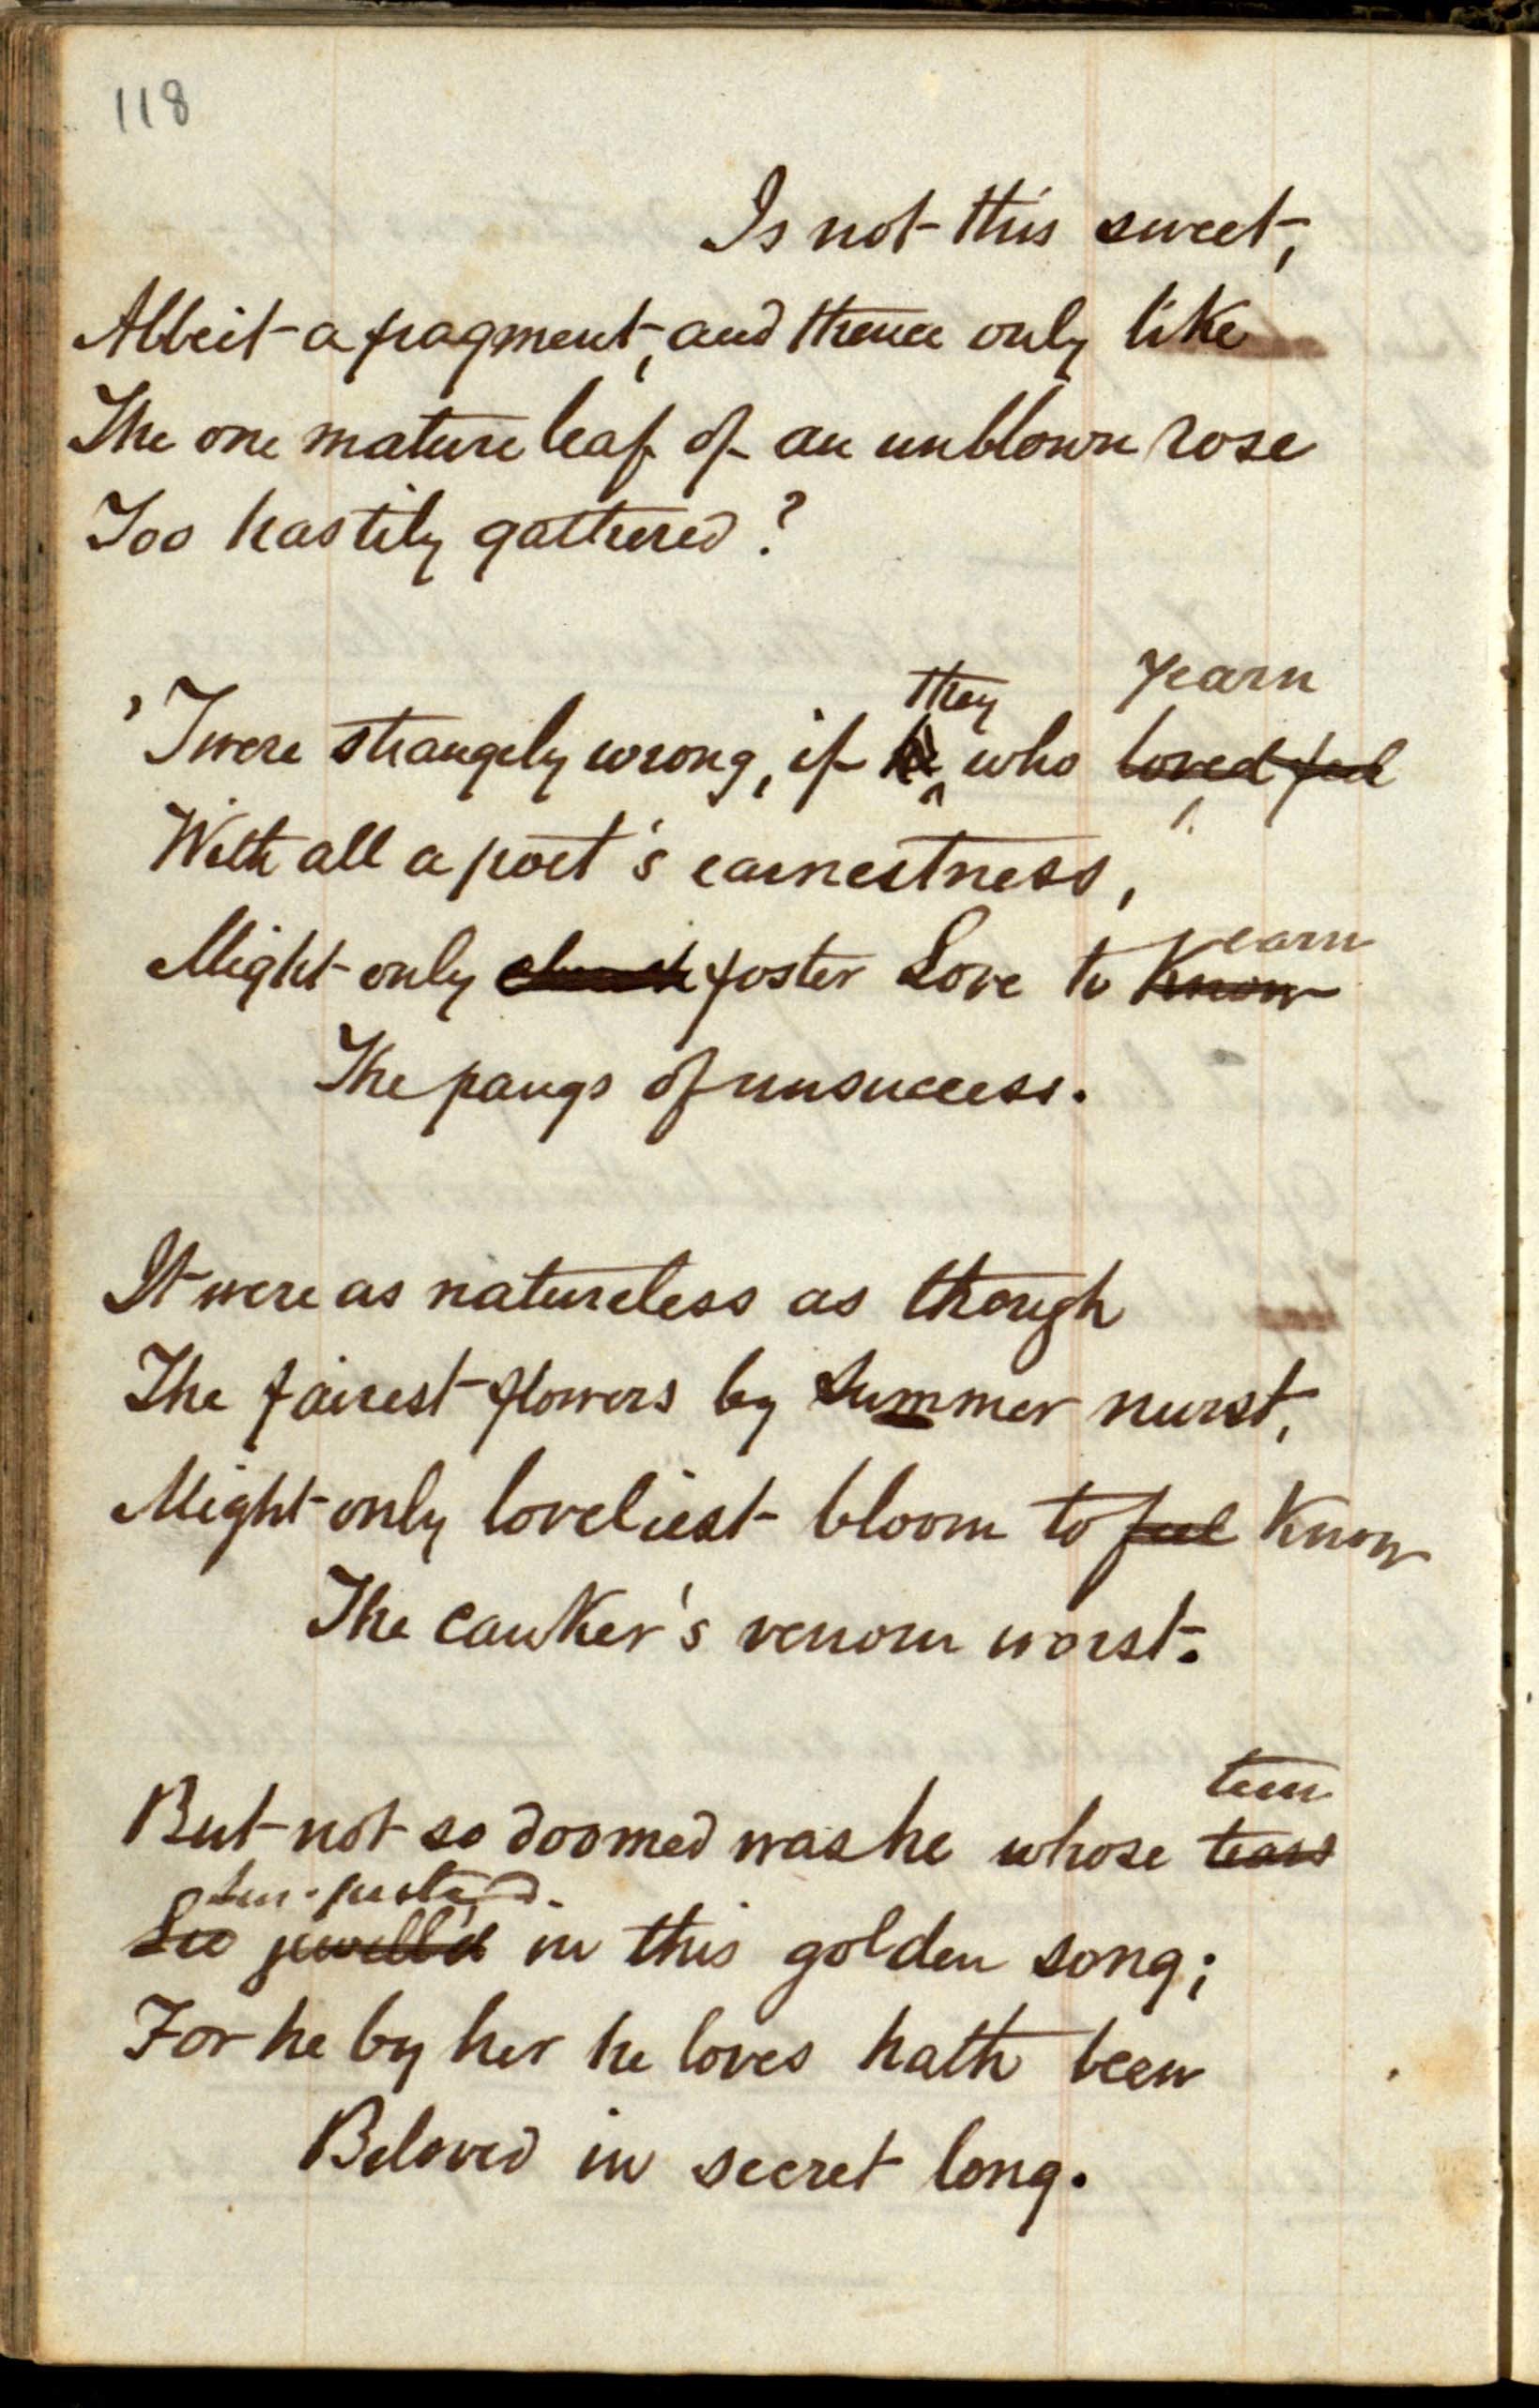 118
Is not this sweet,
Albeit a fragment, and thence only like
The one mature leaf of an unblown rose
Too hastily gathered?
they yearn
'Twere strangely wrong, if he who loved feel
With all a poet's earnestness,
earn
Might only cherish foster Love to know
The pangs of unsuccess.
It were as natureless as though
The fairest flowers by Summer nurst,
Might only loveliest bloom to feel know
The canker's venom worst.
teen
But not so doomed was he whose tears
jewell'd in this golden song;
For he by her he loves hath been
Beloved in secret long.